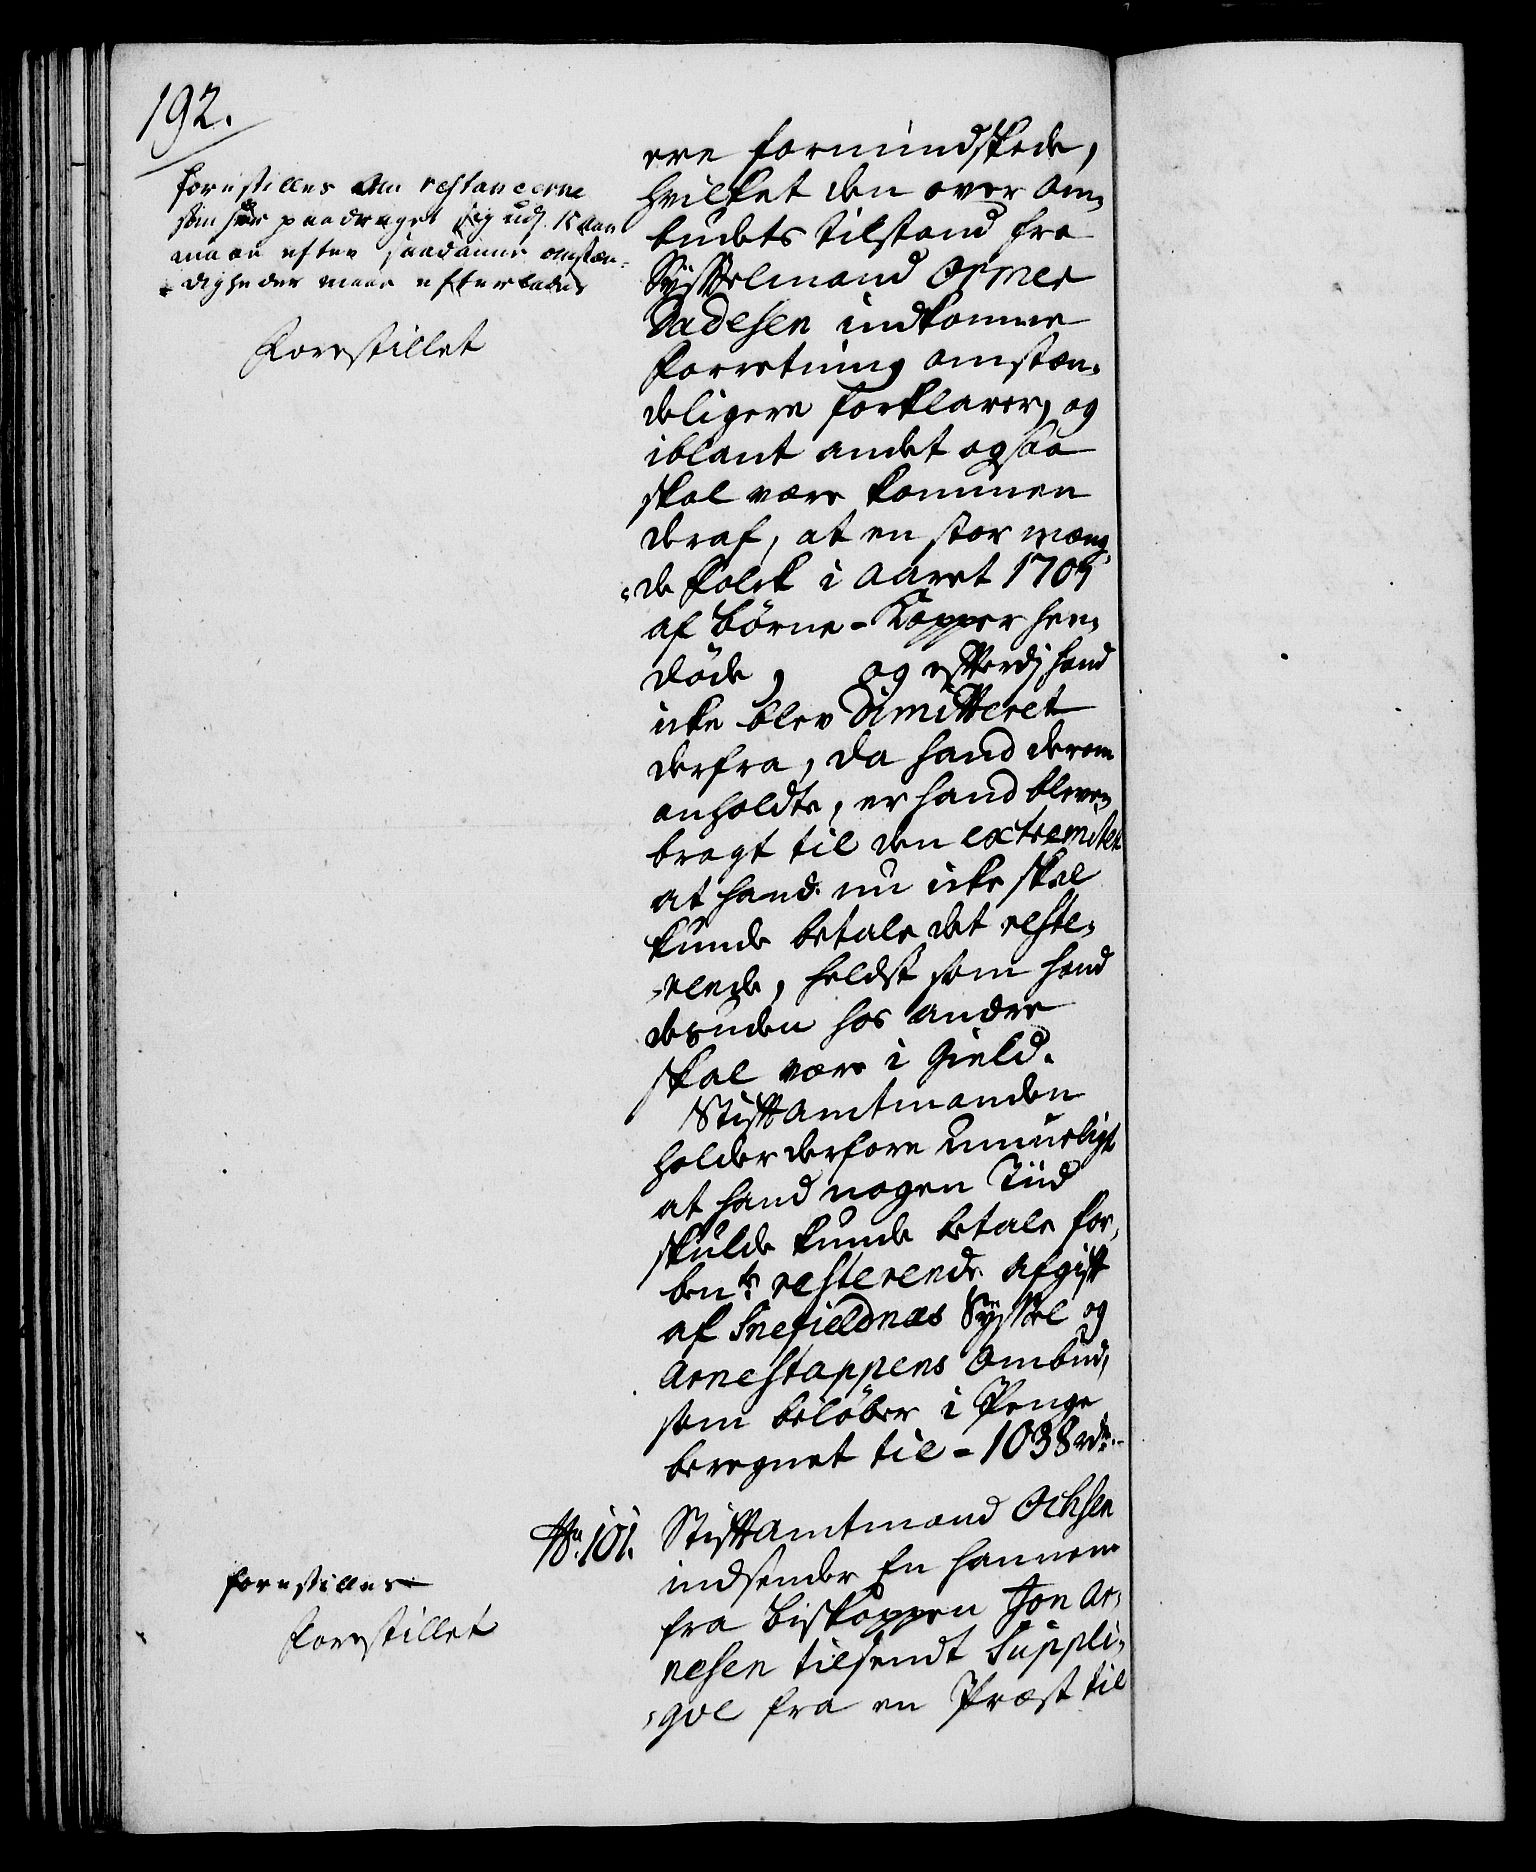 192.
forestilles om restancerne
som har paadraget sig udj 15 aar
maae efter saadanne omstæn-
digheder maae efterlades
Forestillet
ere formindskede,
hvilket den over om-
budets tilstand fra
Sysselmand Ormer
Dadesen indkomne
Forretning omstæn-
deligere forklarer, og
iblant andet ogsaa
skal være kommen
deraf, at en stor mæng-
de Folck i Aaret 1707
af Börne-Kopper hen-
döde, og efterdj hand
icke blev dimitteret
derfra, da hand derom
anholdte, er hand bleven
bragt til den extremitet
at hand nu icke skal
kunde betale det reste-
rende, heldst som hand
desuden hos andre
skal være i Gield.
Stiftamtmanden
holder derfore umueligt
at hand nogen Tiid
skulde kunde betale for-
ben.te resterende afgift
af Snefieldnæs Syssel og
Arnestappens Ombud,
som belöber i Penge
beregnet til - 1038 rdr.
No. 101. Stiftamtmand Ochsen
indsender En hannem
fra Biskoppen Jon Ar-
nesen tilsendt Suppli-
que fra en Præst til
forestilles
Forestillet